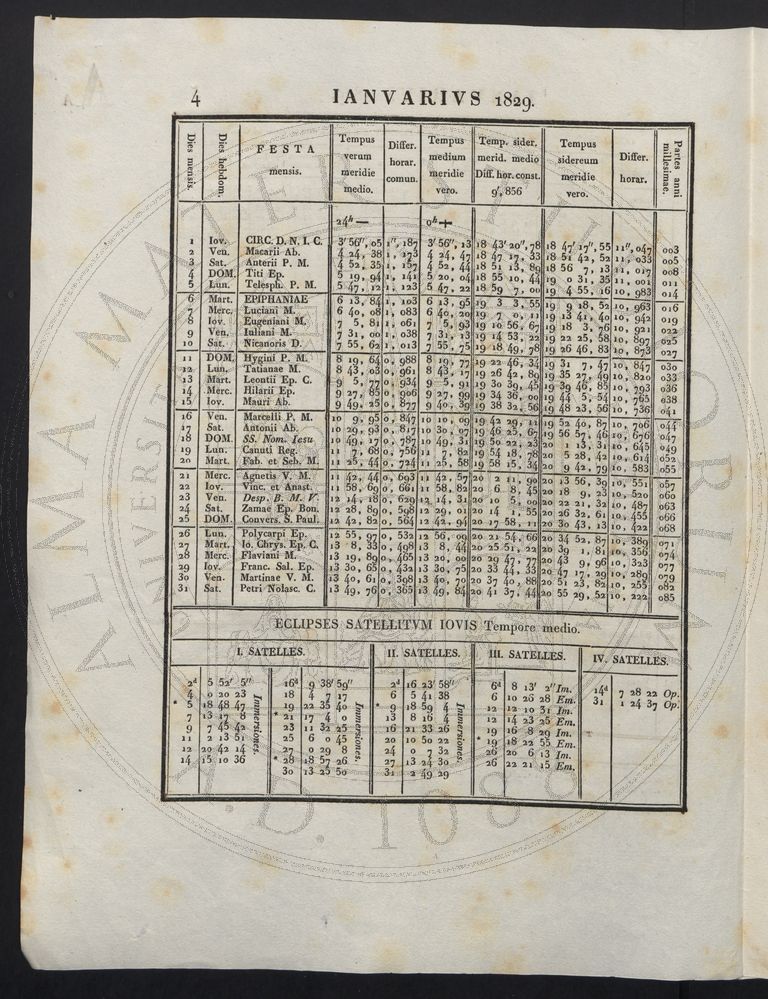 4 IANVARIVS 1829.
Dies mensis. Dies hebdom. FESTA mensis. Tempus verum meridie medio. Differ. horar. comun. Tempus medium meridie vero. Temp. sider. merid. medio Diff. hor. const. 9', 856 Tempus sidereum meridie vero. Differ. horar. Partes anni millesimae.
24h — 0h +
1 Iov. CIRC. D. N. I. C. 3' 56", 05 1", 187 3' 56", 13 18 43' 20", 78 18 47' 17", 55 11", 047 003
2 Ven. Macarii Ab. 4 24, 38 1, 173 4 24, 47 18 47 17, 33 18 51 42, 52 11, 033 005
3 Sat. Anterii P. M. 4 52, 35 1, 157 4 52, 44 18 51 13, 89 18 56 7, 13 11, 017 008
4 DOM. Titi Ep. 5 19, 94 1, 141 5 20, 04 18 55 10, 44 19 0 31, 35 11, 001 011
5 Lun. Telesph. P. M. 5 47, 12 1, 123 5 47, 22 18 59 7, 00 19 4 55, 16 10, 983 014
6 Mart. EPIPHANIAE 6 13, 84 1, 103 6 13, 95 19 3 3, 55 19 9 18, 52 10, 963 016
7 Merc. Luciani M. 6 40, 08 1, 083 6 40, 20 19 7 0, 11 19 13 41, 40 10, 942 019
8 Iov. Eugeniani M. 7 5, 81 1, 061 7 5, 93 19 10 56, 67 19 18 3, 76 10, 921 022
9 Ven. Iuliani M. 7 31, 00 1, 038 7 31, 13 19 14 53, 22 19 22 25, 58 10, 897 025
10 Sat. Nicanoris D. 7 55, 62 1, 013 7 55, 75 19 18 49, 78 19 26 46, 83 10, 873 027
11 DOM. Hygini P. M. 8 19, 64 0, 988 8 19, 77 19 22 46, 34 19 31 7, 47 10, 847 030
12 Lun. Tatianae M. 8 43, 03 0, 961 8 43, 17 19 26 42, 89 19 35 27, 49 10, 820 033
13 Mart. Leontii Ep. C. 9 5, 77 0, 934 9 5, 91 19 30 39, 45 19 39 46, 85 10, 793 036
14 Merc. Hilarii Ep. 9 27, 85 0, 906 9 27, 99 19 34 36, 00 19 44 5, 54 10, 765 038
15 Iov. Mauri Ab. 9 49, 25 0, 877 9 40, 39 19 38 32, 56 19 48 23, 56 10, 736 041
16 Ven. Marcelli P. M. 10 9, 95 0, 847 10 10, 09 19 42 29, 11 19 52 40, 87 10, 706 044
17 Sat. Antonii Ab. 10 29, 93 0, 817 10 30, 07 19 46 25, 67 19 56 57, 46 10, 676 047
18 DOM. SS. Nom. Iesu 10 49, 17 0, 787 10 49, 31 19 50 22, 23 20 1 13, 31 10, 645 049
19 Lun. Canuti Reg. 11 7, 68 0, 756 11 7, 82 19 54 18, 78 20 5 28, 42 10, 614 052
20 Mart. Fab. et Seb. M. 11 25, 44 0, 724 11 25, 58 19 58 15, 34 20 9 42, 79 10, 583 055
21 Merc. Agnetis V. M. 11 42, 44 0, 693 11 42, 57 20 2 11, 90 20 13 56, 39 10, 551 057
22 Iov. Vinc. et Anast. 11 58, 69 0, 661 11 58, 82 20 6 8, 45 20 18 9, 23 10, 520 060
23 Ven. Desp. B. M. V. 12 14, 18 0, 629 12 14, 31 20 10 5, 00 20 22 21, 32 10, 487 063
24 Sat. Zamae Ep. Bon. 12 28, 89 0, 598 12 29, 01 20 14 1, 55 20 26 32, 61 10, 455 066
25 DOM. Convers. S. Paul. 12 42, 82 0, 564 12 42, 94 20 17 58, 11 20 30 43, 13 10, 422 068
26 Lun. Polycarpi Ep. 12 55, 97 0, 532 12 56, 09 20 21 54, 66 20 34 52, 87 10, 389 071
27 Mart. Io. Chrys. Ep. C. 13 8, 33 0, 498 13 8, 44 20 25 51, 22 20 39 1, 81 10, 356 074
28 Merc. Flaviani M. 13 19, 89 0, 465 13 20, 00 20 29 47, 77 20 43 9, 96 10, 323 077
29 Iov. Franc. Sal. Ep. 13 30, 65 0, 432 13 30, 75 20 33 44, 33 20 47 17, 29 10, 289 079
30 Ven. Martinae V. M. 13 40, 61 0, 398 13 40, 70 20 37 40, 88 20 51 23, 82 10, 255 082
31 Sat. Petri Nolasc. C. 13 49, 76 0, 365 13 49, 84 20 41 37, 44 20 55 29, 52 10, 222 085
ECLIPSES SATELLITVM IOVIS Tempore medio.
I. SATELLES. II. SATELLES. III. SATELLES. IV. SATELLES.
2d 5 52' 5" 16d 9 38' 59" 2d 16 23' 58" 6d 8 13' 2" Im. 14d 7 28 22 Op.
4 0 20 23 18 4 7 17 6 5 41 38 6 10 26 28 Em. 31 1 24 37 Op.
* 5 18 48 47 19 22 35 40 * 9 18 59 4 12 12 10 31 Im.
7 13 17 8 * 21 17 4 0 13 8 16 4 12 14 23 25 Em.
9 7 45 42 23 11 32 25 16 21 33 26 19 16 8 29 Im.
11 2 13 51 25 6 0 45 20 10 50 22 * 19 18 22 55 Em.
12 20 42 14 27 0 29 8 24 0 7 32 26 20 6 13 Im.
14 15 10 36 * 28 18 57 26 27 13 24 30 26 22 21 15 Em.
30 13 25 50 31 2 49 29
Immersiones. Immersiones. Immersiones.
ALMA MATER
A.D. 1088